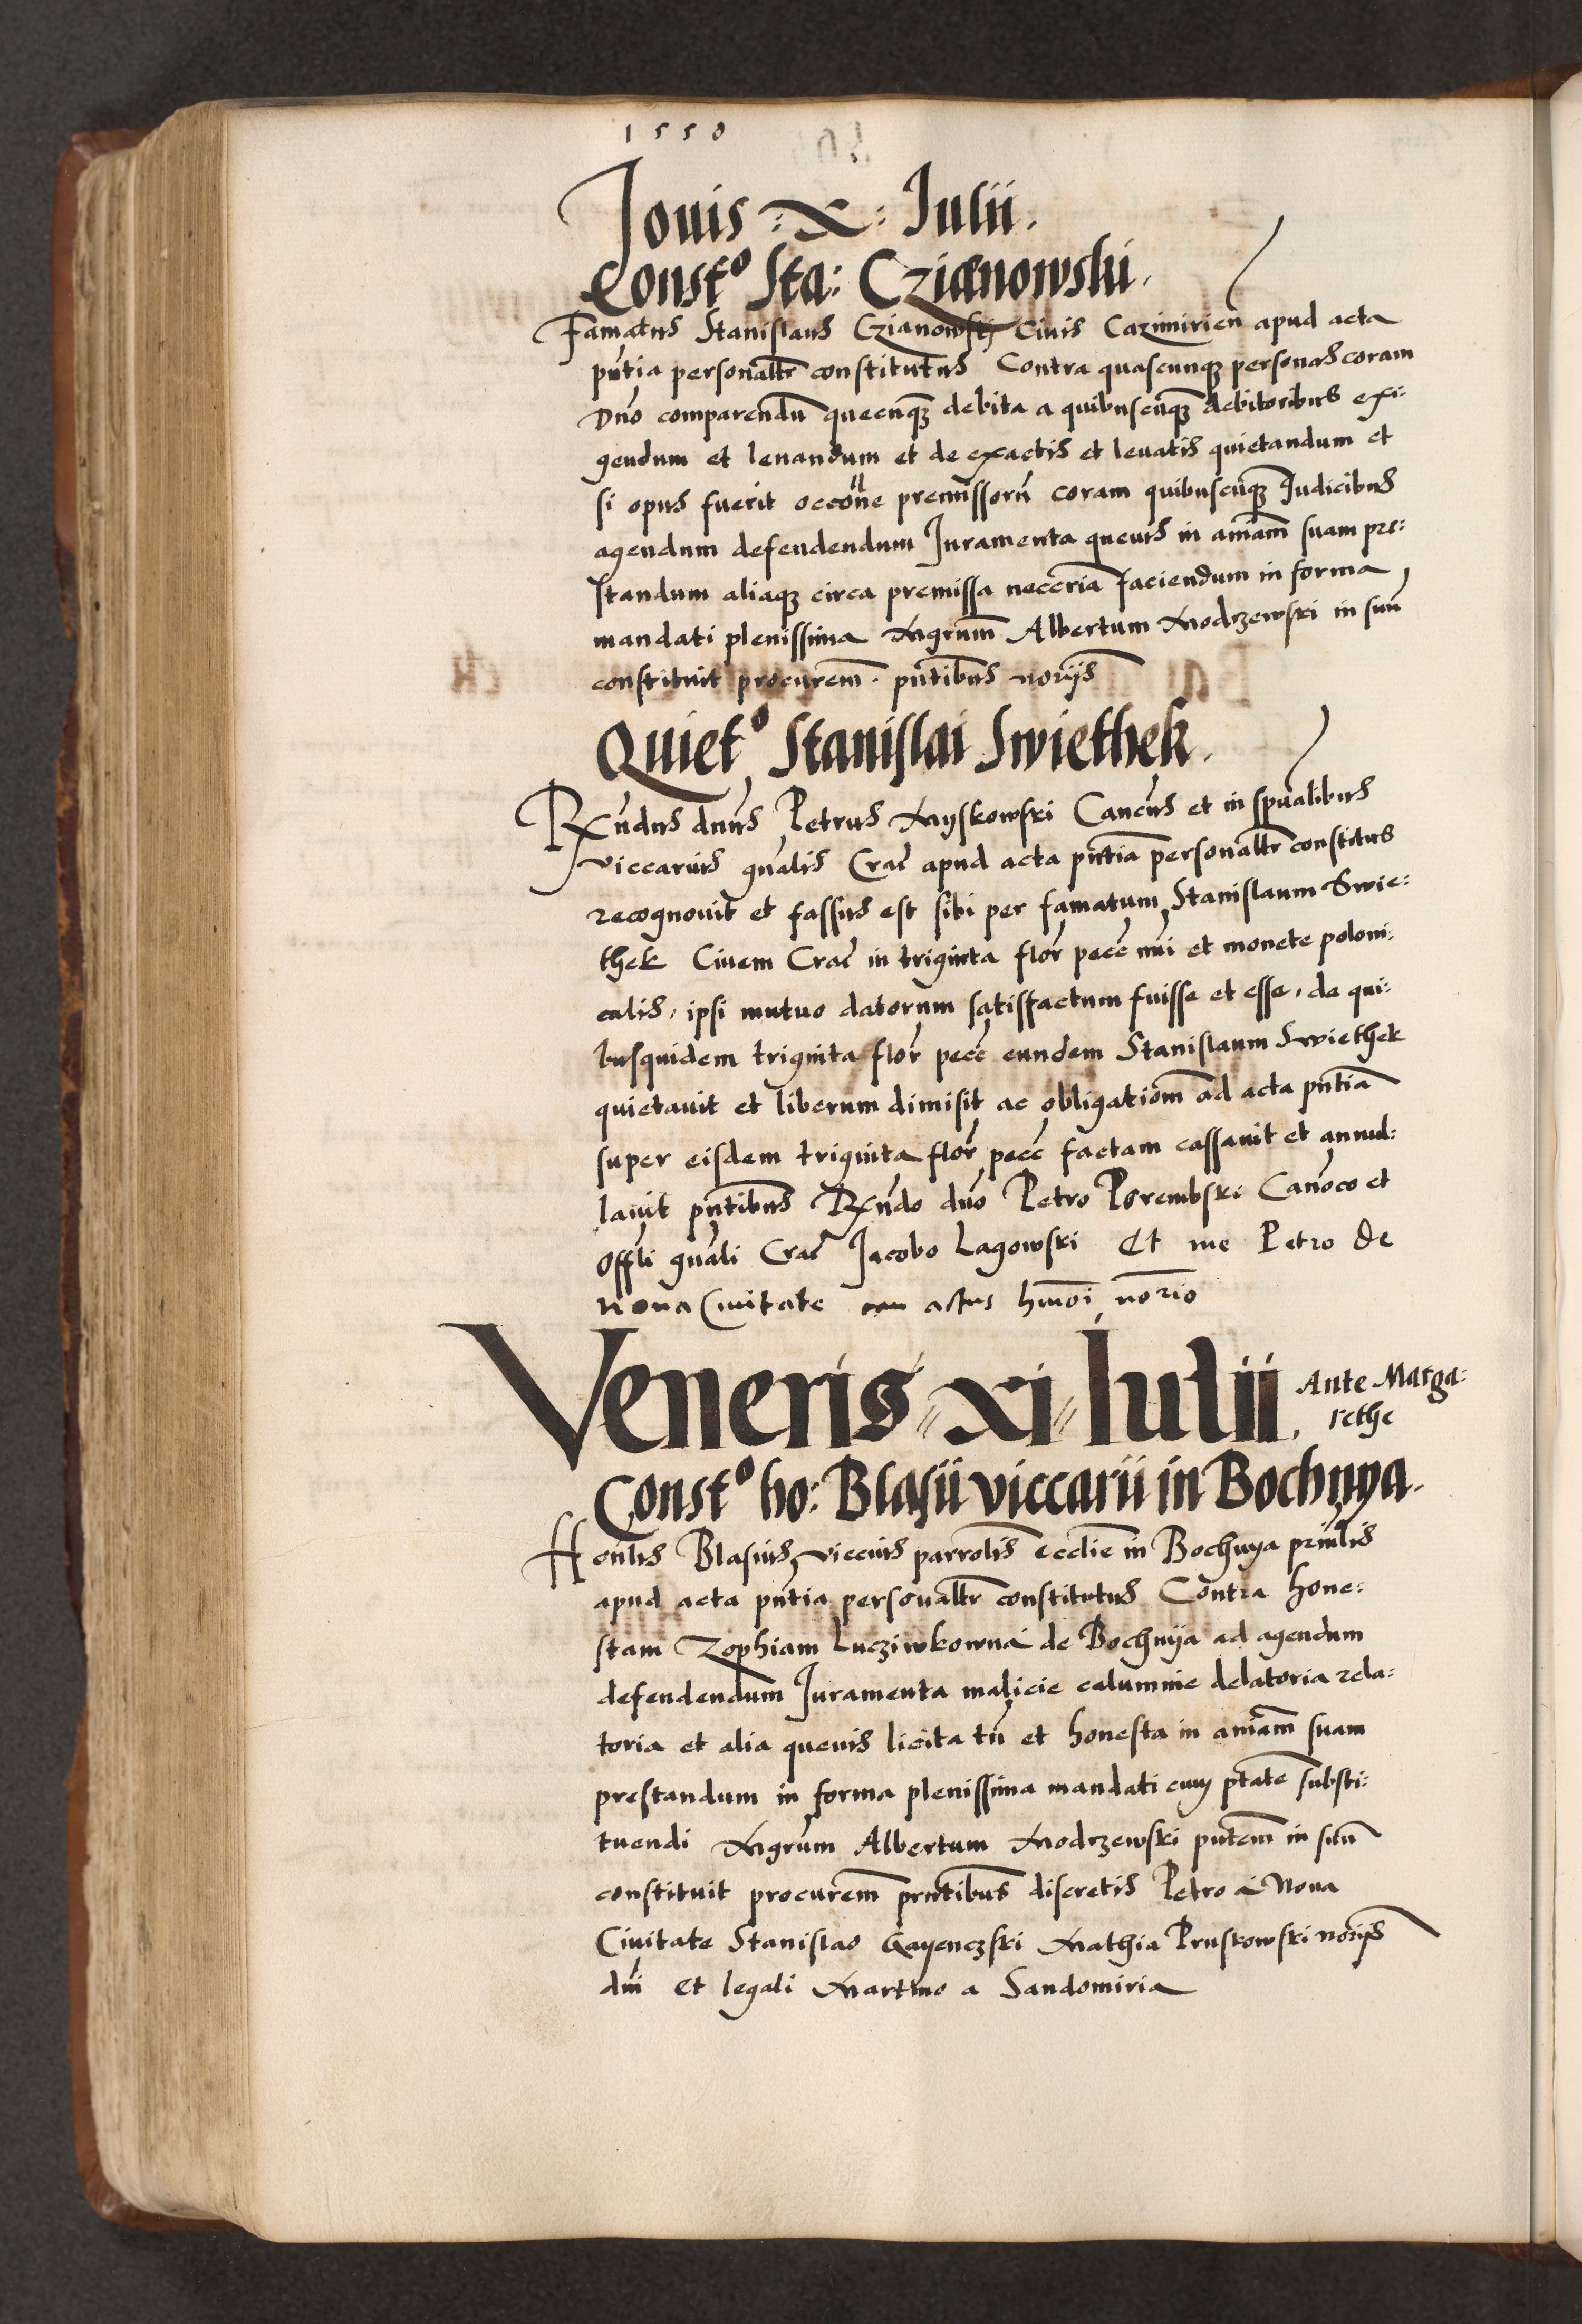 1550
Jouis : x : Julii.
Constᵒ Sta: Czianowski.
Famatus Stanislaus Czianowski Ciuis Cazimirien̄ apud acta
pn̄tia personalr̄ constitutus Contra quascunqȝ personas coram
Dn̄o comparendū quecūqȝ debita a quibuscūqȝ debitoribus exi:
gendum et leuandum et de exactis et leuatis quietandum et
si opus fuerit occōne premissorū coram quibuscūqȝ Judicibus
agendum defendendum Juramenta queuis in aīam̄ suam pre:
standum aliaqȝ circa premissa neccēria faciendum in forma
mandati plenissima Mgrūm Albertum Modrzewski in suū
constituit procurem̄. pn̄tibus noriis̄
Quietᵒ Stanislai Swiethek.
Rxn̄dus dn̄us Petrus Myskowski Cancūs et in spūalibus
viccarius gn̄alis Crac̄ apud acta pn̄tia personalr̄ constitus
recognouit et fassus est sibi per famatum Stanislaum Swie:
thek Ciuem Crac̄ in triginta flor̄ pecc̄ mn̄i et monete poloni:
calis, ipsi mutuo datorum satisfactum fuisse et esse, de qui:
busquidem triginta flor̄ pecc̄ eundem Stanislaum Swiethek
quietauit et liberum dimisit ac obligatiom̄ ad acta pn̄tia
super eisdem triginta flor̄ pecc̄ factam cassauit et annul:
lauit pn̄tibus Rxn̄do dn̄o Petro Porembski Canōco et
Offl̄i gn̄ali Crac̄ Jacobo Lagowski Et me Petro de
noua Ciuitate actus hm̄oi nōrio
Veneris xi Iulii. Ante Marga:
rethe
Constᵒ ho: Blasii viccarii in Bochnya.
Hon̄lis Blasius viccius parrolīs eccl̄ie in Bochnya prin̄lis
apud acta pn̄tia personalr̄ constitutus Contra hone:
stam Zophiam Lucziwkowna de Bochnya ad agendum
defendendum Juramenta malicie calumnie delatoria rela:
toria et alia queuis licita tn̄ et honesta in aīam̄ suam
prestandum in forma plenissima mandati cum ptātē substi:
tuendi Mgrūm Albertum Modrzewski pn̄tem̄ in suū
constituit procurem̄ prn̄tibus discretis Petro a Noua
Ciuitate Stanislao Gayenczski Mathia Pruskowski noriis̄
dn̄i et legali Martino a Sandomiria